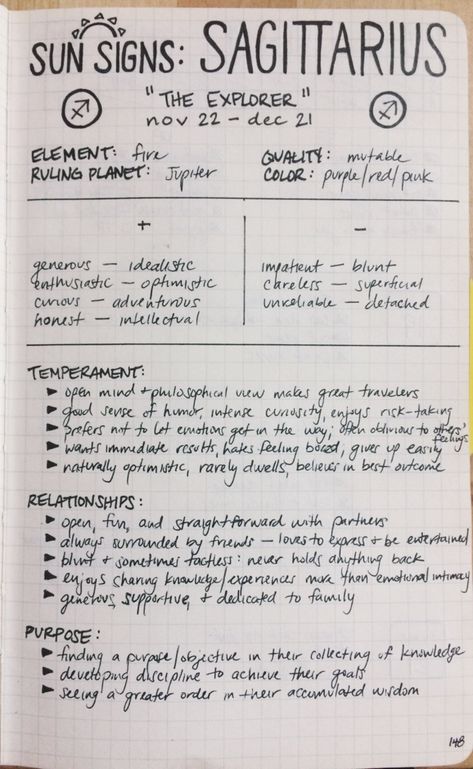 SUN SIGNS: SAGITTARIUS
"THE EXPLORER"
nov 22 – dec 21
ELEMENT: fire
QUALITY: mutable
RULING PLANET: Jupiter
COLOR: purple/red/pink
+
–
generous — idealistic
enthusiastic — optimistic
curious — adventurous
honest — intellectual
impatient — blunt
careless — superficial
unreliable — detached
TEMPERAMENT:
► open mind + philosophical view makes great travelers
► good sense of humor, intense curiosity, enjoys risk-taking
► prefers not to let emotions get in the way; often oblivious to others' feelings
► wants immediate results, hates feeling bored, gives up easily
► naturally optimistic, rarely dwells, believes in best outcome
RELATIONSHIPS:
► open, fun, and straightforward with partners
► always surrounded by friends — loves to express + be entertained
► blunt + sometimes tactless: never holds anything back
► enjoys sharing knowledge/experiences more than emotional intimacy
► generous, supportive, + dedicated to family
PURPOSE:
► finding a purpose/objective in their collecting of knowledge
► developing discipline to achieve their goals
► seeing a greater order in their accumulated wisdom
148